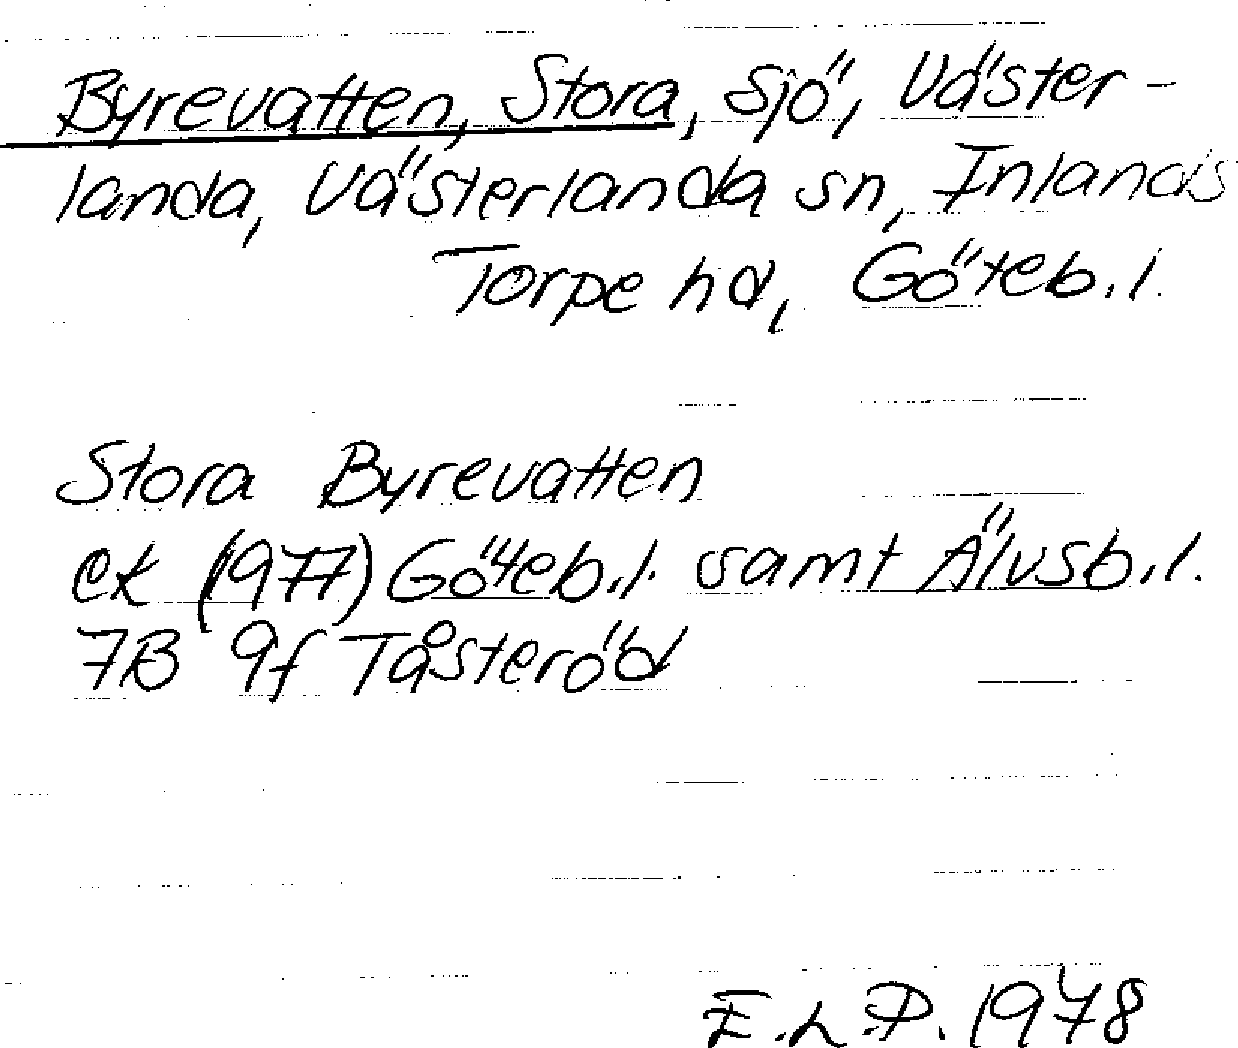 Byrevatten, Stora, sjö, Väster-
landa, Västerlanda sn, Inlands
Torpe hd, Göteb.l.
Stora Byrevatten
ek (1977) Göteb.l. samt Älvsb.l.
7B 9f Tåsteröd
E.L.P. 1978